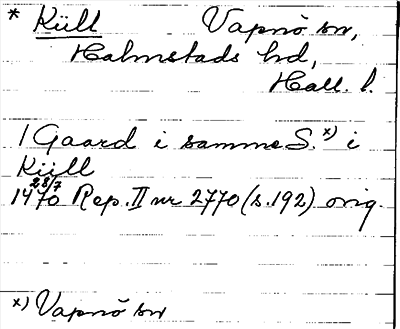 * Küll Vapnö sn,
Halmstads hd,
Hall. l.
1 Gaard i samme S. x) i
Küll
1470 28/7 Rep. II nr 2770 (s. 192) orig.
x) Vapnö sn